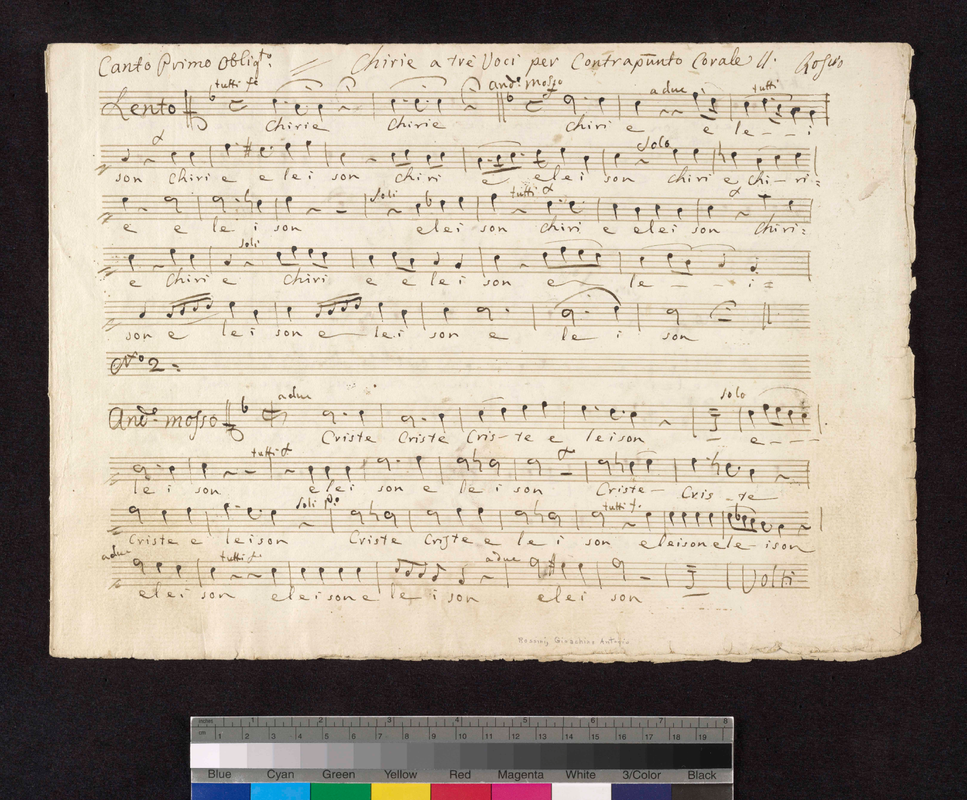 Canto Primo Obligto: Chirie a trè Voci per Contrapunto Corale
tutti fe ande: mosso a due tutti
Lento
Chirie Chirie Chiri e e le - - i
Solo
son Chiri e e lei son Chiri e elei son Chiri e Chi - ri=
Soli tutti
e e le i son elei son Chiri e elei son Chiri=
Soli
e Chiri e Chiri e e lei son e le - - i =
son e lei son e lei son e le i son
No 2:
a due solo
Ande: mosso
Criste Criste Cris - te e leison e - - -
tutti
le i son elei son e le i son Criste - Cris - te
Soli po: tutti f.
Criste e leison Criste Criste e le i son eleison ele - ison
a due tutti fe a due
elei son eleison e le i son elei son Volti
Rossini, Gioachino Antonio
inches 1 2 3 4 5 6 7 8
cm 1 2 3 4 5 6 7 8 9 10 11 12 13 14 15 16 17 18 19
Blue Cyan Green Yellow Red Magenta White 3/Color Black